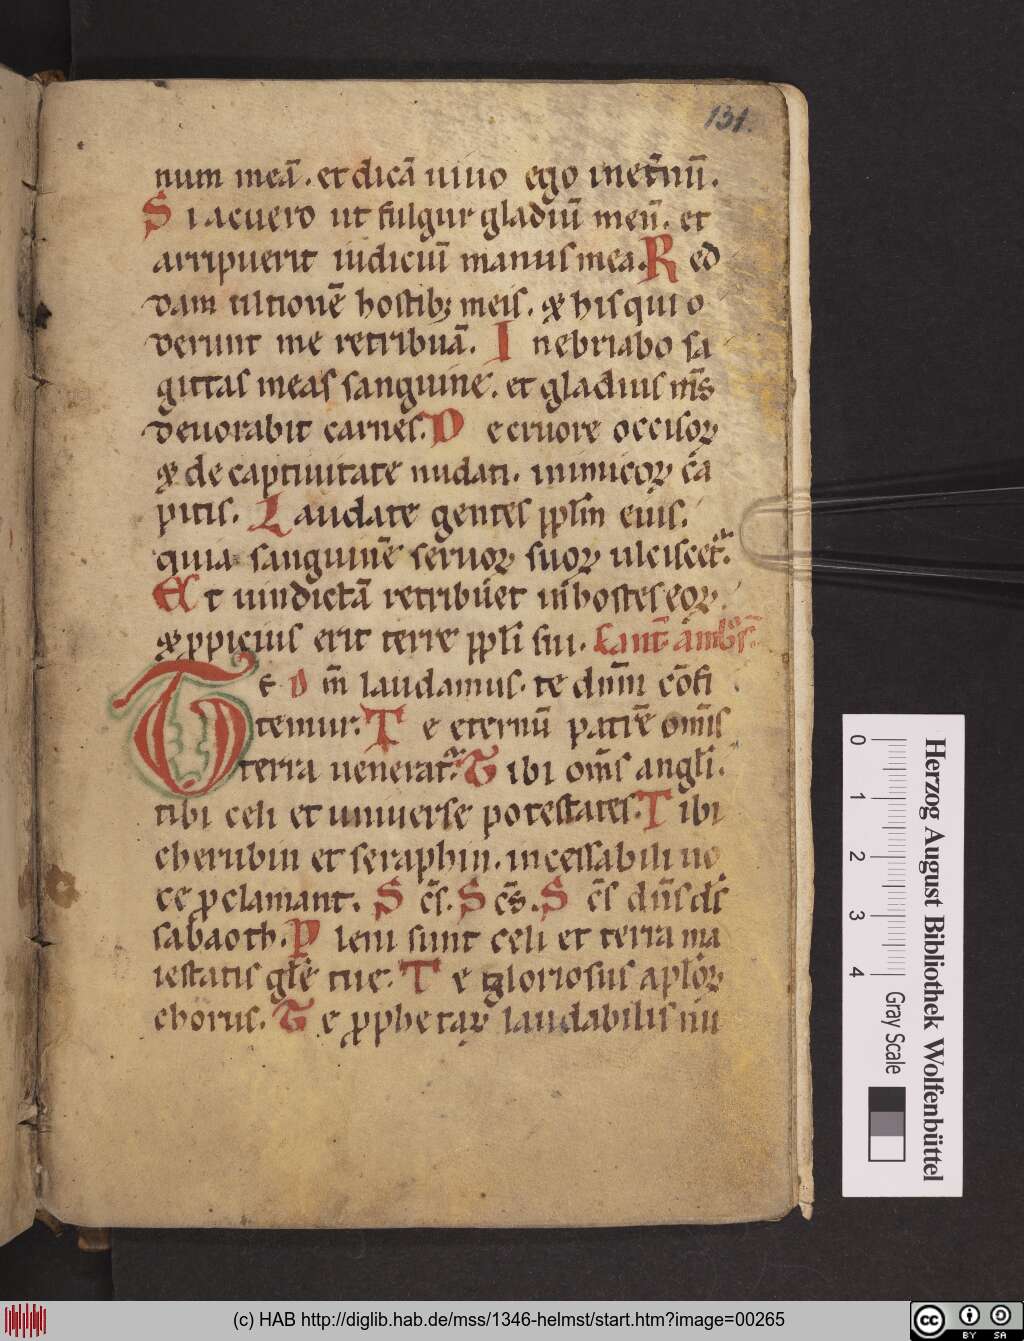 131.
num meā. et dicā uiuo ego inet̄nū.
Si acuero ut fulgur gladiū meū. et
arripuerit iudiciū manus mea. Red
dam ultionē hostibꝫ meis. ⁊ his qui o
derunt me retribuā. Inebriabo sa
gittas meas sanguine. et gladius m̄s
deuorabit carnes. De cruore occisoꝝ
⁊ de captiuitate nudati. inimicoꝝ ca
pitis. Laudate gentes ppl̄m eius.
quia sanguinē seruoꝝ suoꝝ ulciscet᷑.
Et uindictā retribuet in hostes eoꝝ.
⁊ ꝓpicius erit terre ppl̄i sui. Cant̄ ambr̄s.
Te dm̄ laudamus. te dn̄m cōfi
temur. Te eternū patrē omīs
terra uenerat᷑. Tibi om̄s angl̄i.
tibi celi et uniuerse potestates. Tibi
cherubin et seraphin. incessabili uo
ce ꝓclamant. Sc̄s. Sc̄s. Sc̄s dn̄s ds̄
sabaoth. Pleni sunt celi et terra ma
iestatis glē tue. Te gloriosus apl̄oꝝ
chorus. Te ꝓphetaꝝ laudabilis nu
Herzog August Bibliothek Wolfenbüttel
0 1 2 3 4 Gray Scale
(c) HAB http://diglib.hab.de/mss/1346-helmst/start.htm?image=00265
cc BY SA